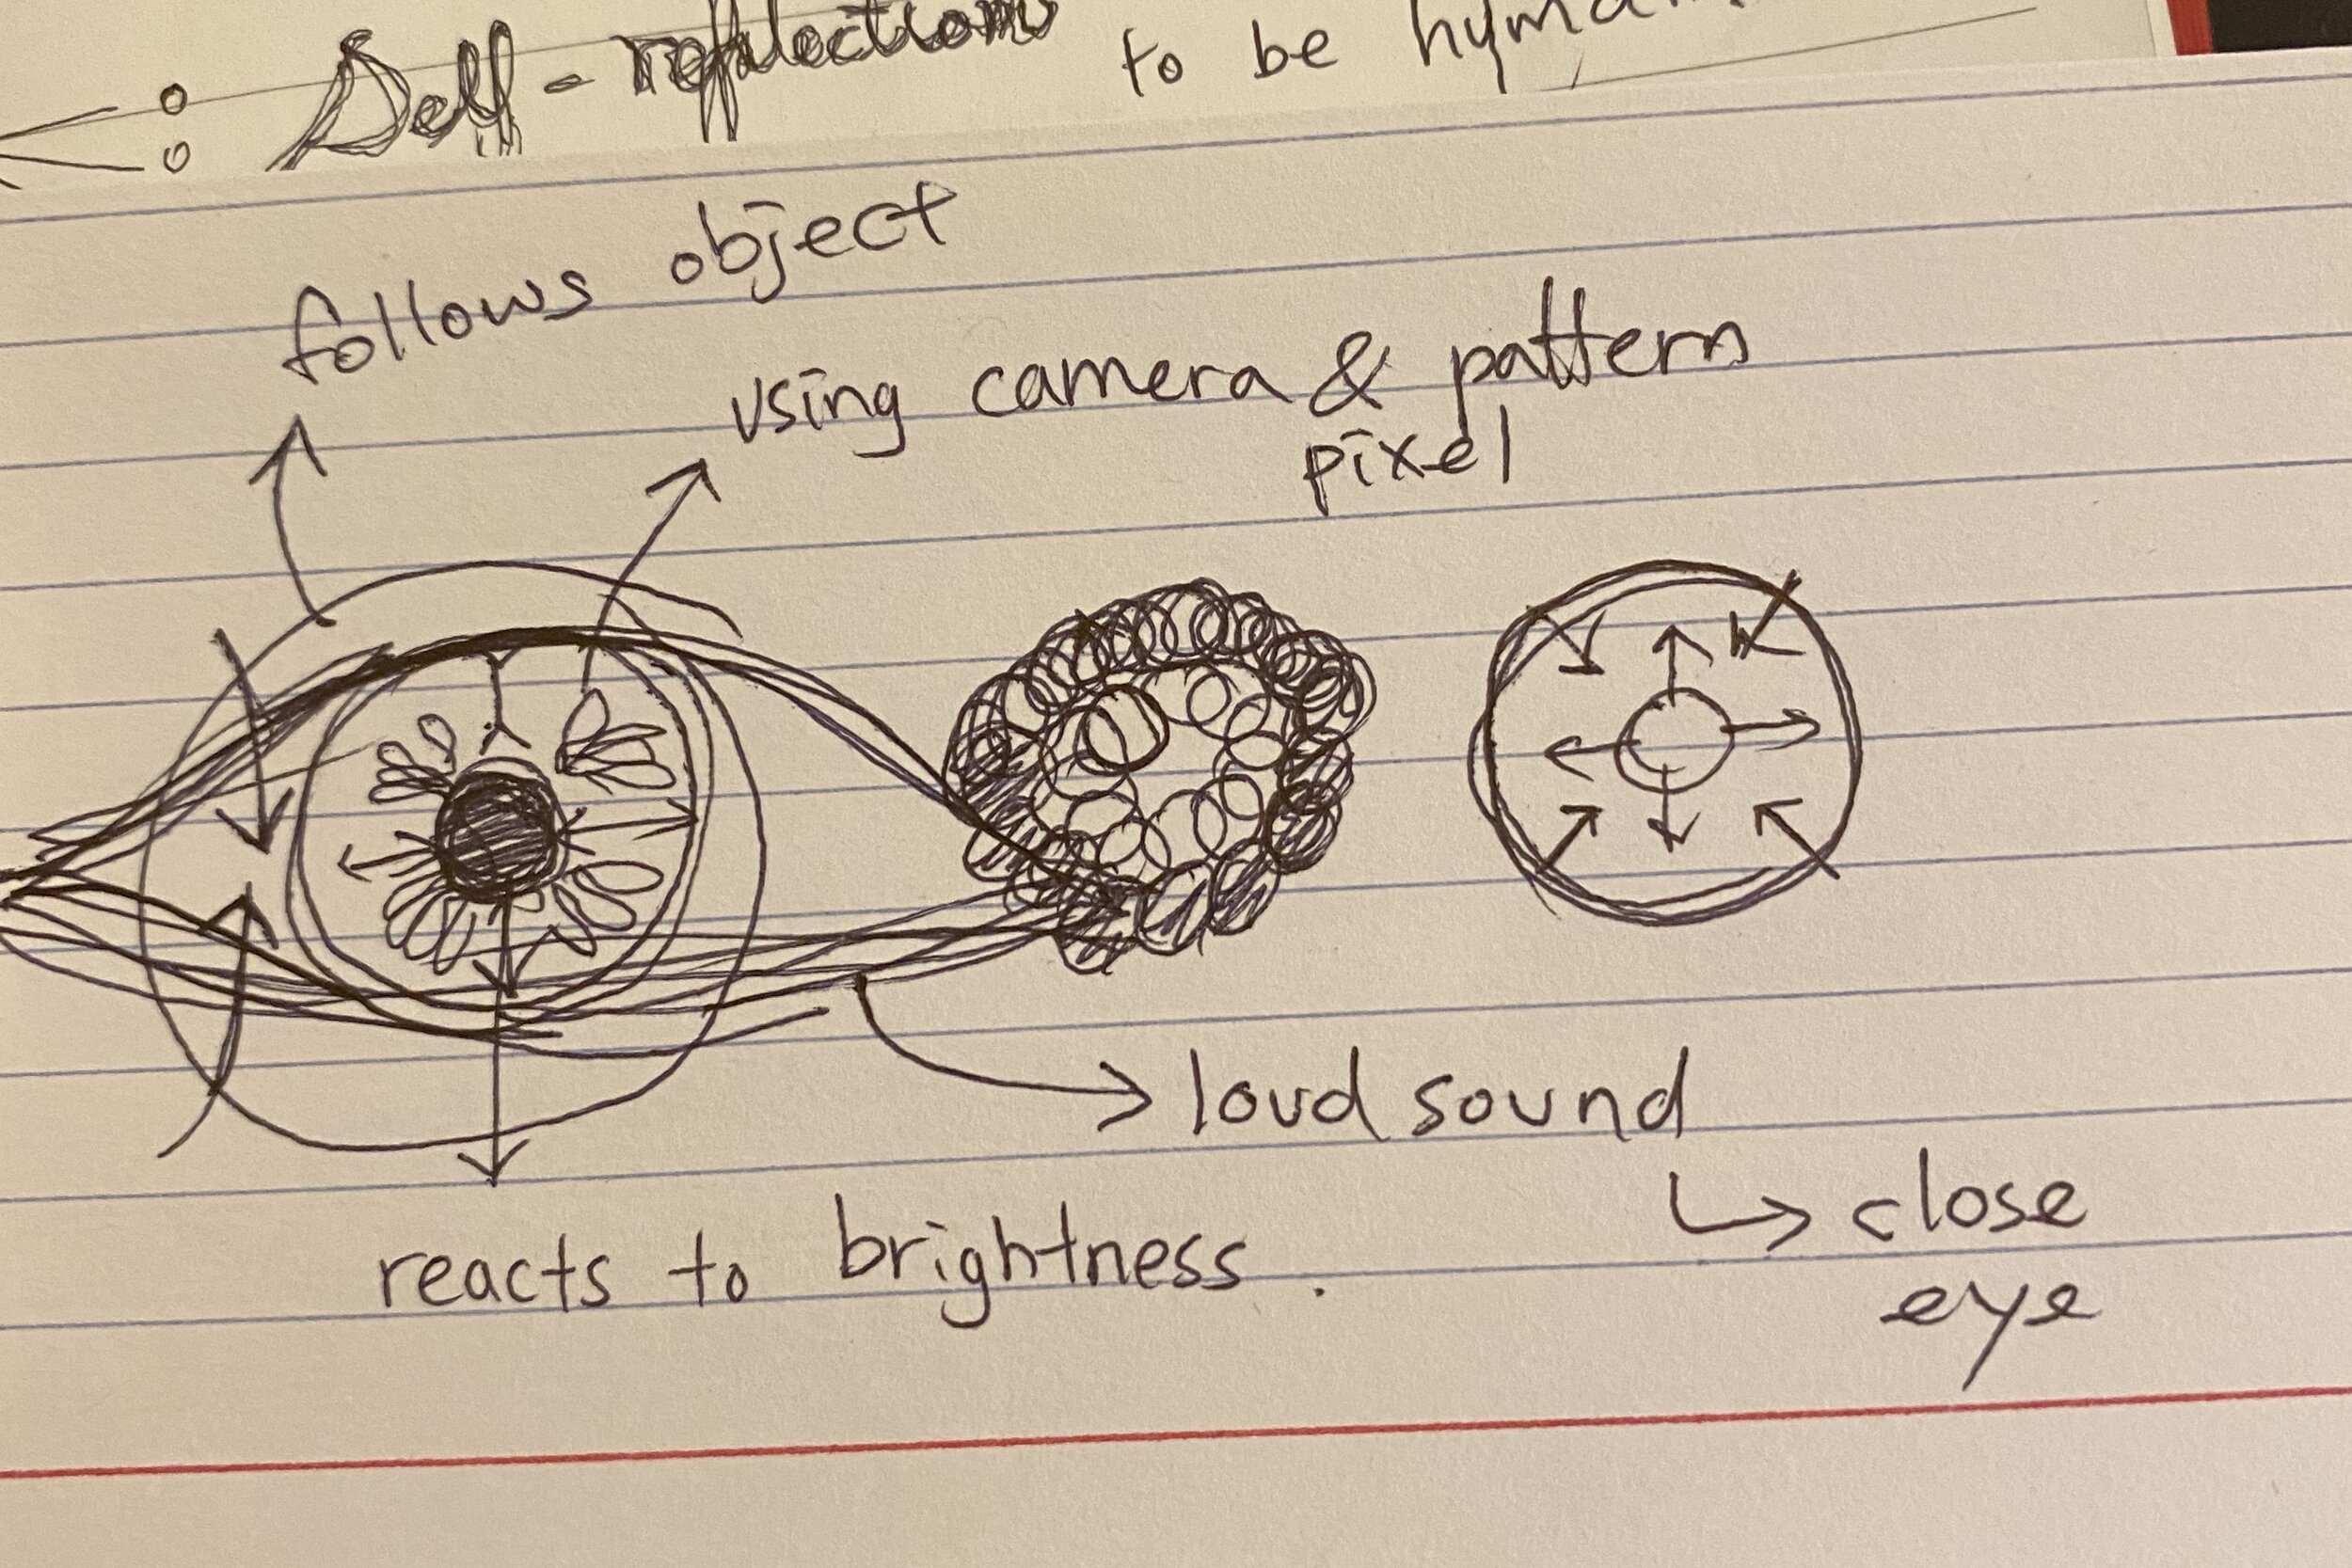 : Self-reflection to be human
follows object
using camera & pattern
pixel
loud sound
close
eye
reacts to brightness.